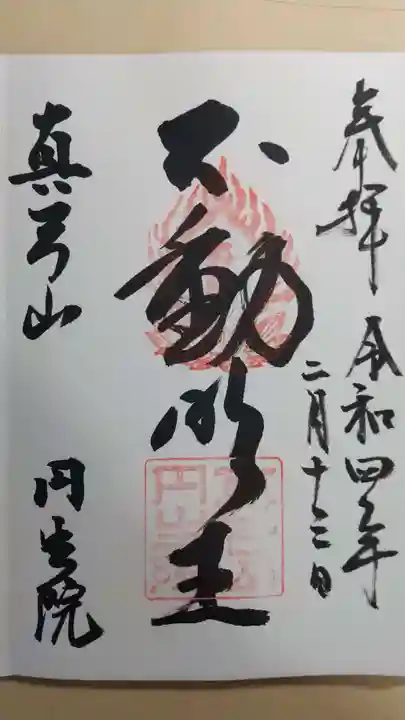 奉拝 令和四年
二月十三日
不動明王
真弓山 円生院